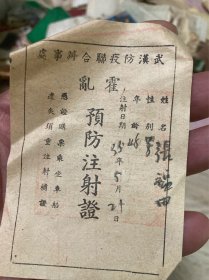 武漢防疫聯合辦事處
霍亂
預防注射證
姓名 張
性別 男
年齡 28
注射日期
35年5月21日
憑證購票乘坐車船
遺失須重注射補證